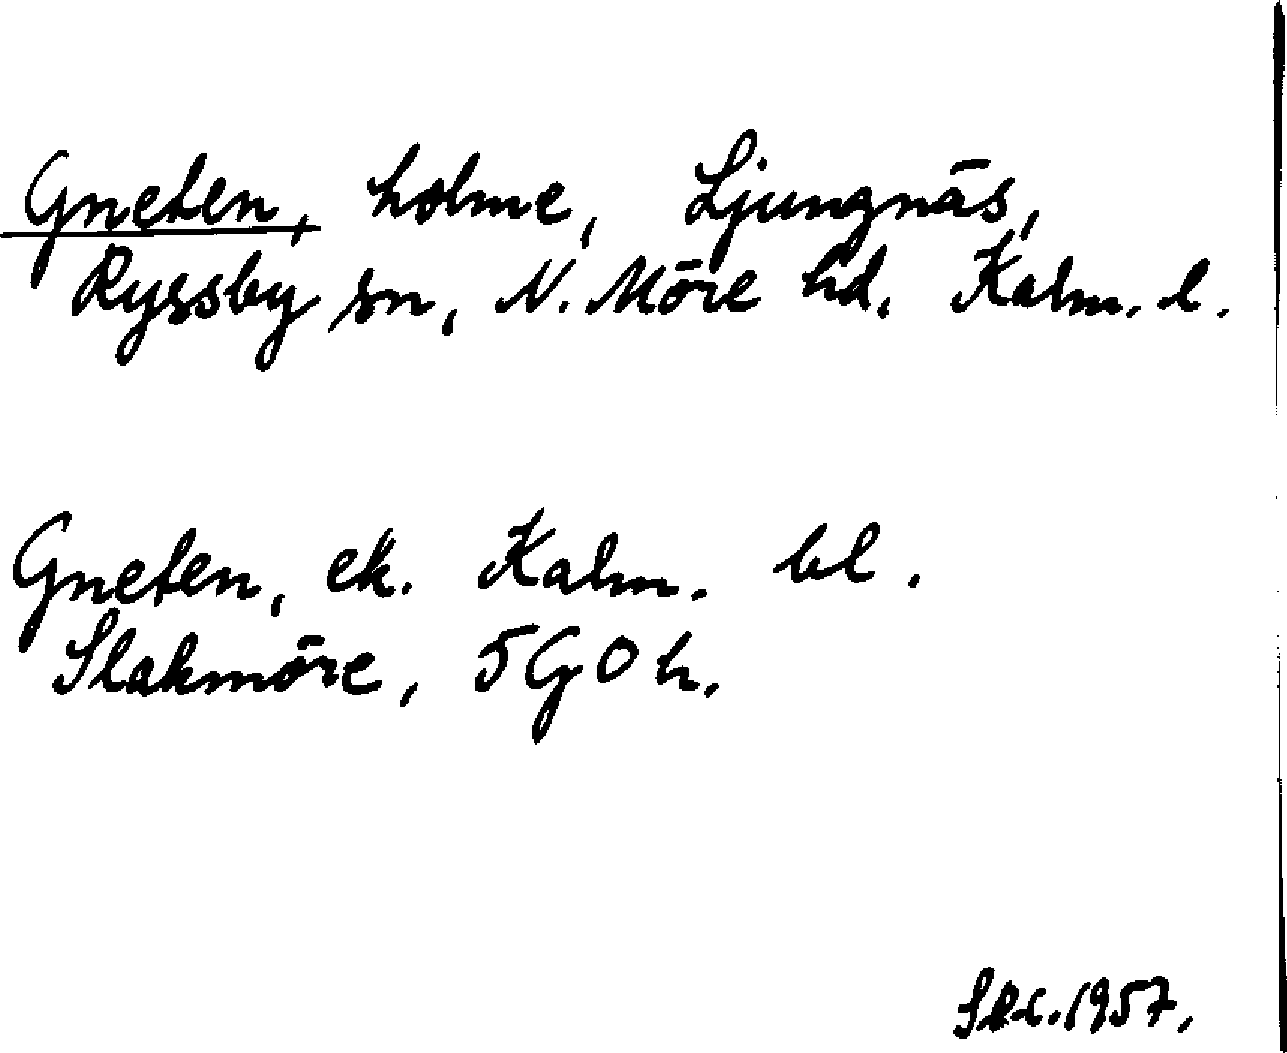 Gneten, holme, Ljungnäs,
Ryssby sn, N. Möre hd. Kalm. l.
Gneten, ek. Kalm. bl.
Slakmöre, 5G0h.
1957.